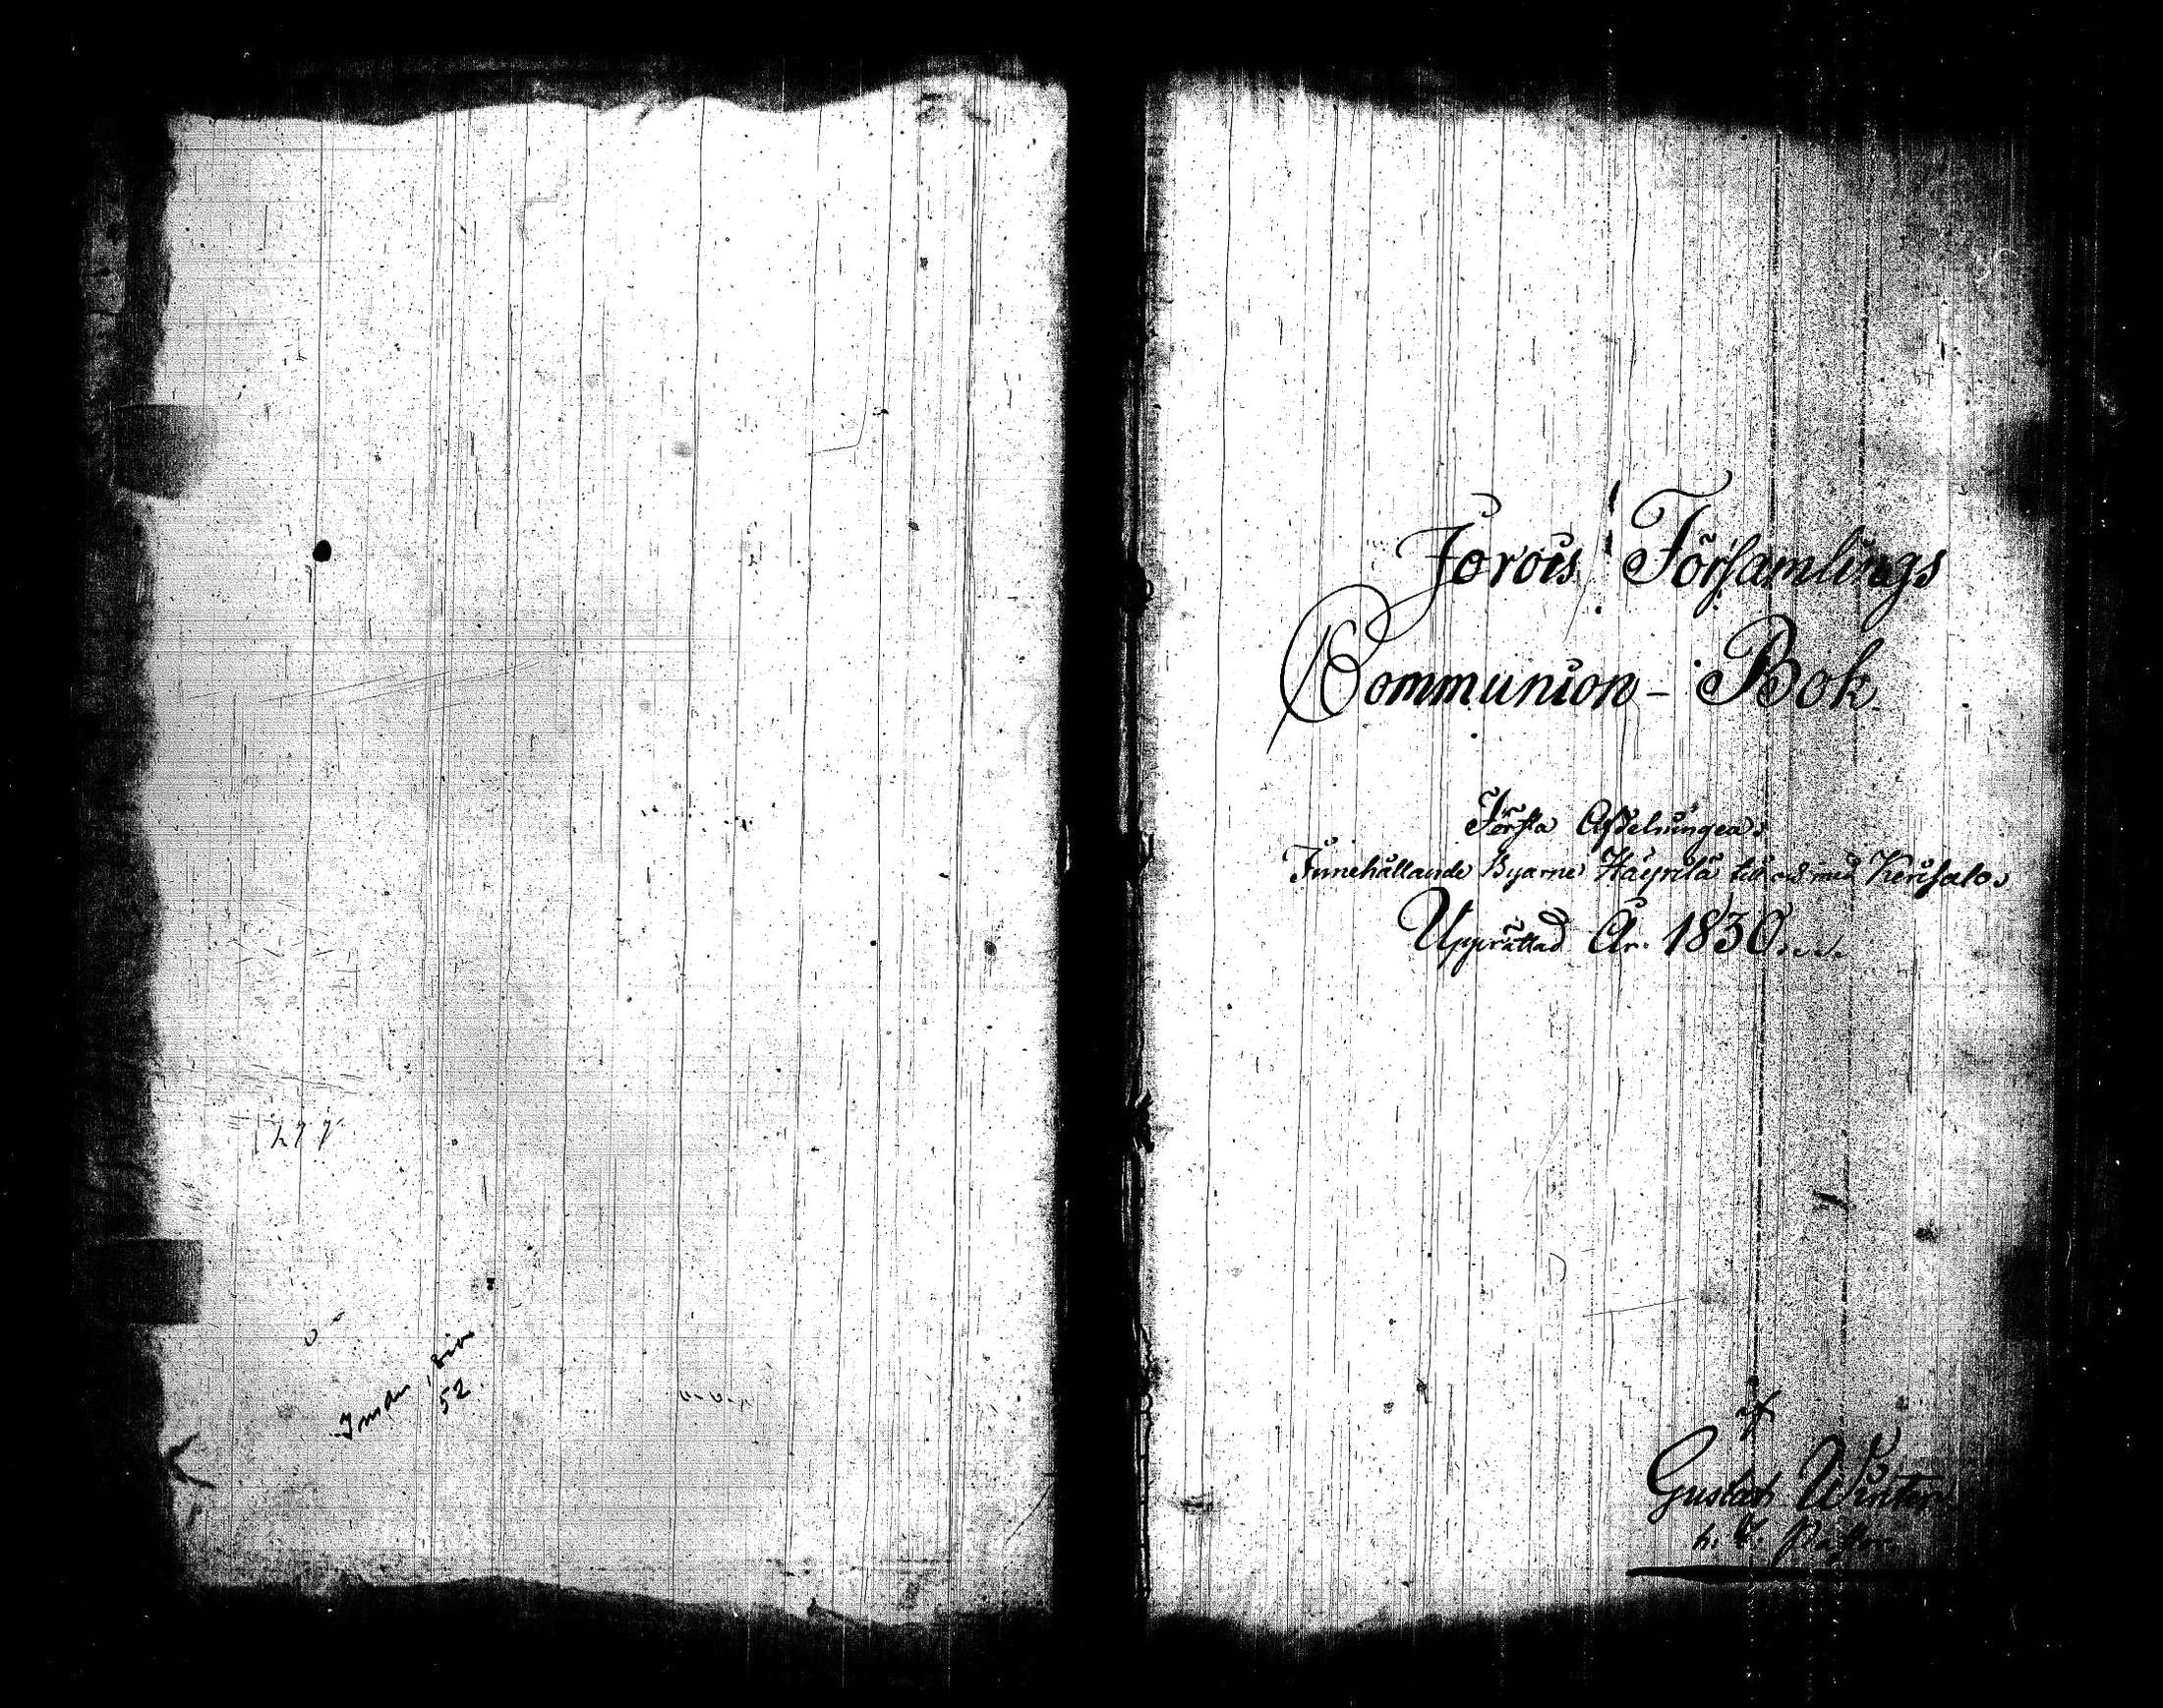 52.
Jorois Församlings
Communion - Bok.
Första Afdelningen.
Innehållande Byarne Häyrilä till och med Kerisalo.
Upprättad År. 1830. . . .
af
Gustaf Winter
h. t. Pastor.